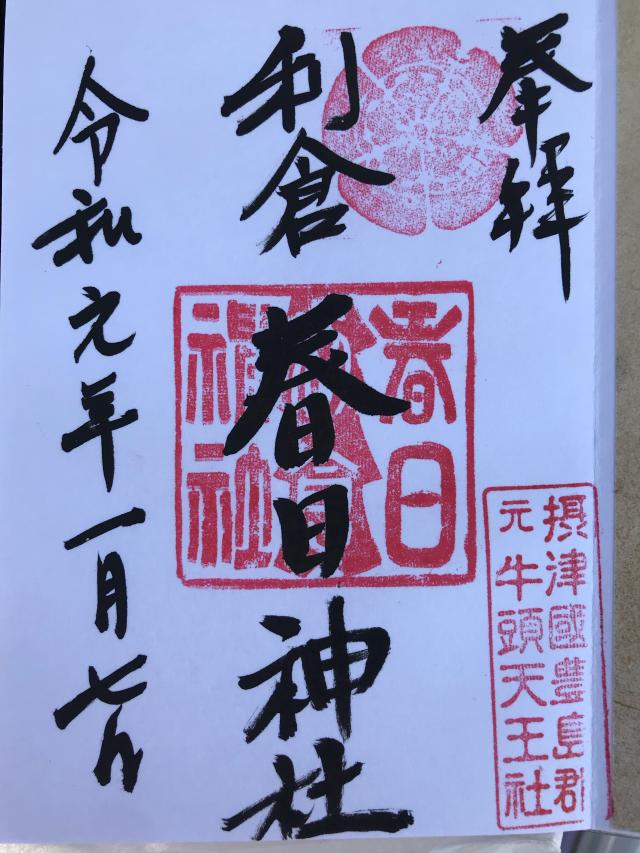 奉拝
利倉春日神社
令和元年一月七日
春日
神社
摂津國豊島郡
元牛頭天王社